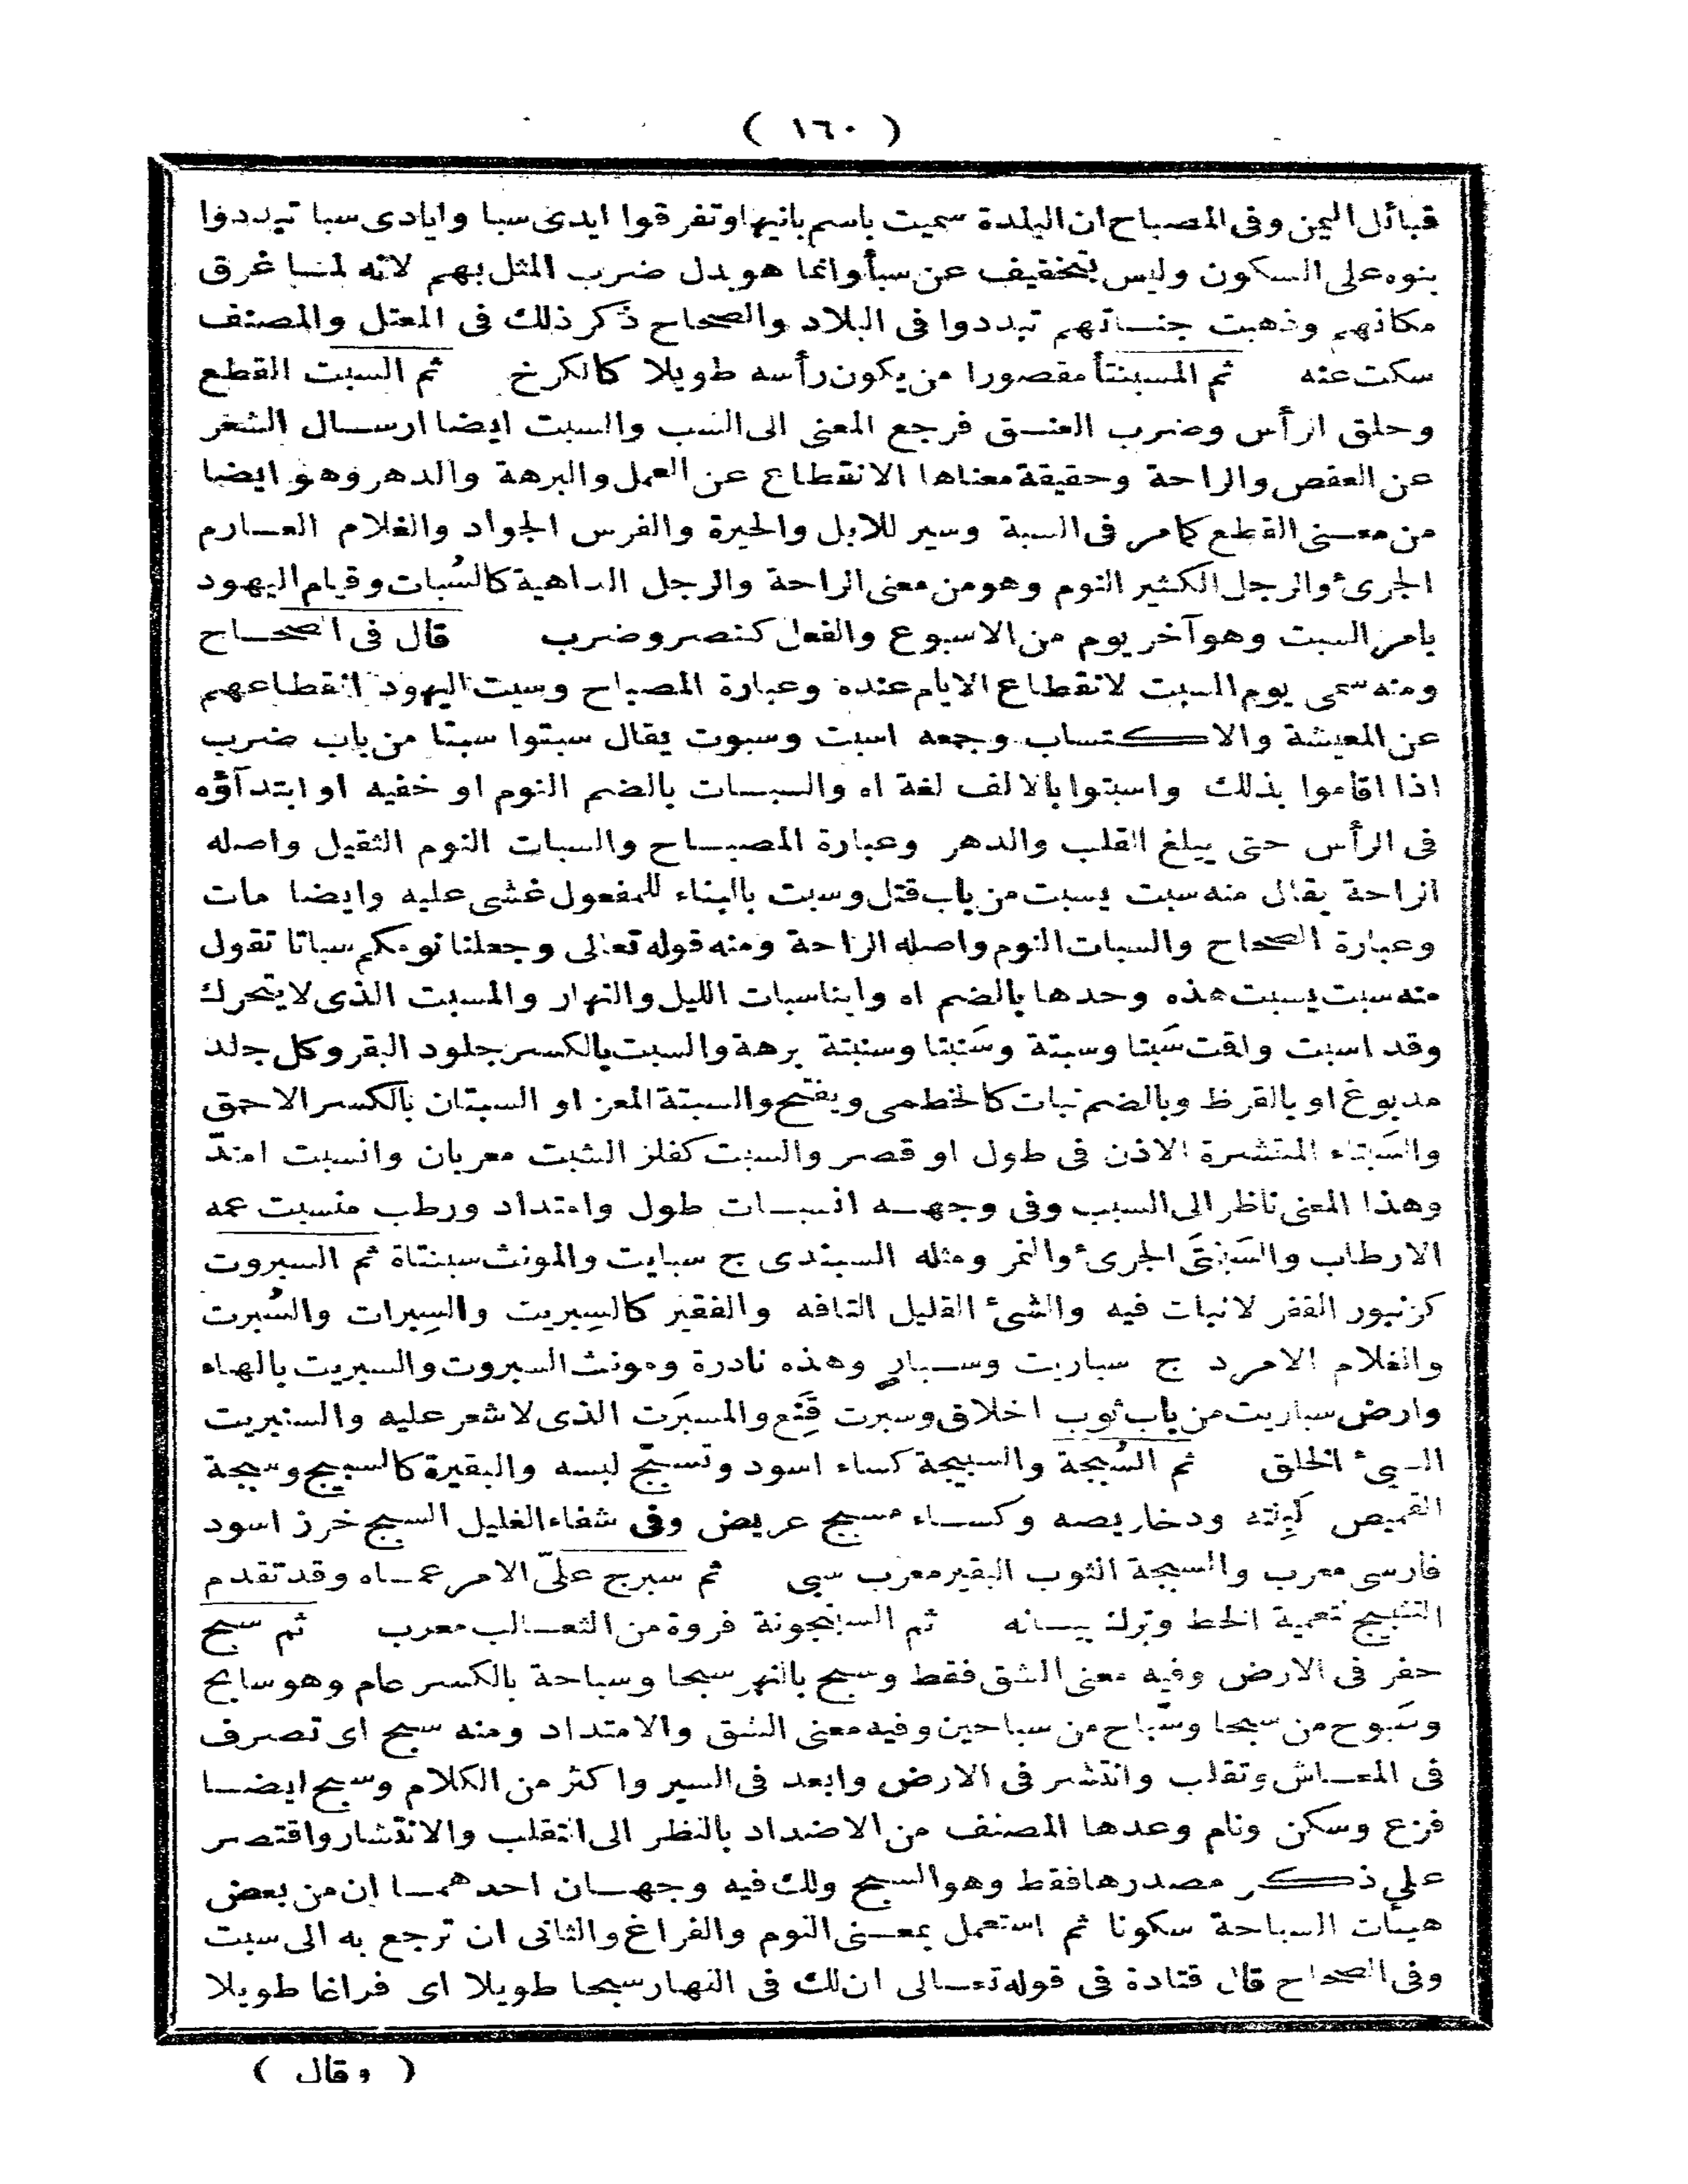 ( ١٦٠ )
قبائل اليمن وفى المصباح ان البلدة سميت باسم بانيها وتفرقوا ايدى سبا وايادى سبا تبددوا
بنوه على السكون وليس بتخفيف عن سبأ وانما هو بدل ضرب المثل بهم لانه لمـا غرق
مكانهم وذهبت جنـاتهم تبددوا فى البلاد والصحاح ذكر ذلك فى المعتل والمصنف
سكت عنه ثم المسبنتأ مقصورا من يكون رأسه طويلا كالكرخ ثم السبت القطع
وحلق الرأس وضرب العنـق فرجع المعنى الى السب والسبت ايضا ارسـال الشعر
عن العقص والراحة وحقيقة معناها الانقطاع عن العمل والبرهة والدهر وهو ايضا
من معـنى القطع كما مر فى السبة وسير للابل والحيرة والفرس الجواد والغلام العـارم
الجرىء والرجل الكثير النوم وهو من معنى الراحة والرجل الداهية كالسُبات وقيام اليهود
بامر السبت وهو آخر يوم من الاسبوع والفعل كنصر وضرب قال فى الصحـاح
ومنه سمى يوم السبت لانقطاع الايام عنده وعبارة المصباح وسبت اليهود انقطاعهم
عن المعيشة والاكتساب وجمعه اسبت وسبوت يقال سبتوا سبتا من باب ضرب
اذا اقاموا بذلك واسبتوا بالالف لغة اه والسبـات بالضم النوم او خفيه او ابتدآؤه
فى الرأس حتى يبلغ القلب والدهر وعبارة المصبـاح والسبات النوم الثقيل واصله
الراحة يقال منه سبت يسبت من باب قتل وسبت بالبناء للمفعول غشى عليه وايضا مات
وعبارة الصحاح والسبات النوم واصله الراحة ومنه قوله تعالى وجعلنا نومكم سباتا تقول
منه سبت يسبت هذه وحدها بالضم اه وابنا سبات الليل والنهار والمسبت الذى لا يتحرك
وقد اسبت واقت سَبتا وسبتة وسَنبتا وسنبتة برهة والسبت بالكسر جلود البقر وكل جلد
مدبوغ او بالقرظ وبالضم نبات كالخطمى ويفتح والسبتة المعز او السبتان بالكسر الاحمق
والسَبتاء المنتشرة الاذن فى طول او قصر والسبت كفلز الشبت معربان وانسبت امتدّ
وهذا المعنى ناظر الى السبب وفى وجهـه انسبـات طول وامتداد ورطب منسبت عمه
الارطاب والسَبَنتَى الجرىء والنمر ومثله السبندى ج سبايت والمونث سبنتاة ثم السبروت
كزنبور القفر لا نبات فيه والشىء القليل التافه والفقير كالسِبريت والسِبرات والسُبرت
والغلام الامرد ج سباريت وسـبارٍ وهذه نادرة ومونث السبروت والسبريت بالهاء
وارض سباريت من باب ثوب اخلاق وسبرت قَنَع والمسبَرَت الذى لا شعر عليه والسنبريت
السيىء الخلق ثم السُبجة والسبيجة كساء اسود وتسبّج لبسه والبقيرة كالسبيج وسبجة
القميص لَبِنته ودخاريصه وكسـاء مسبج عريض وفى شفاء الغليل السبج خرز اسود
فارسى معرب والسبيجة الثوب البقير معرب سبى ثم سبرج علىّ الامر عمـاه وقد تقدم
التثبيج تعمية الخط وترك بيـانه ثم السبنجونة فروة من الثعـالب معرب ثم سبح
حفر فى الارض وفيه معنى الشق فقط وسبح بالنهر سبحا وسباحة بالكسر عام وهو سابح
وسَبوح من سبحا وسبّاح من سباحين وفيه معنى الشق والامتداد ومنه سبح اى تصرف
فى المعـاش وتقلب وانتشر فى الارض وابعد فى السير واكثر من الكلام وسبح ايضـا
فزع وسكن ونام وعدها المصنف من الاضداد بالنظر الى التقلب والانتشار واقتصر
على ذكر مصدرها فقط وهو السبح ولك فيه وجهـان احدهمـا ان من بعض
هيأت السباحة سكونا ثم استعمل بمعـنى النوم والفراغ والثانى ان ترجع به الى سبت
وفى الصحاح قال قتادة فى قوله تعـالى ان لك فى النهار سبحا طويلا اى فراغا طويلا
( وقال )